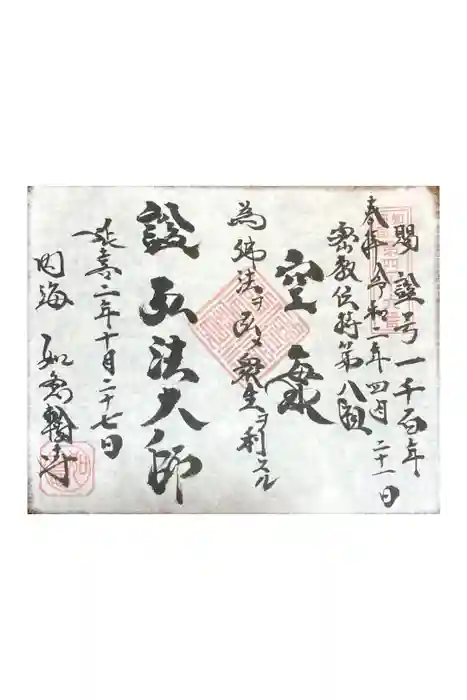 賜諡号一千百年
奉拝令和二年四月二十一日
密教伝持第八祖
空海
為佛法ヲ 衆生ヲ利スル
諡弘法大師
延喜二年十月二十七日
内海 如意輪寺